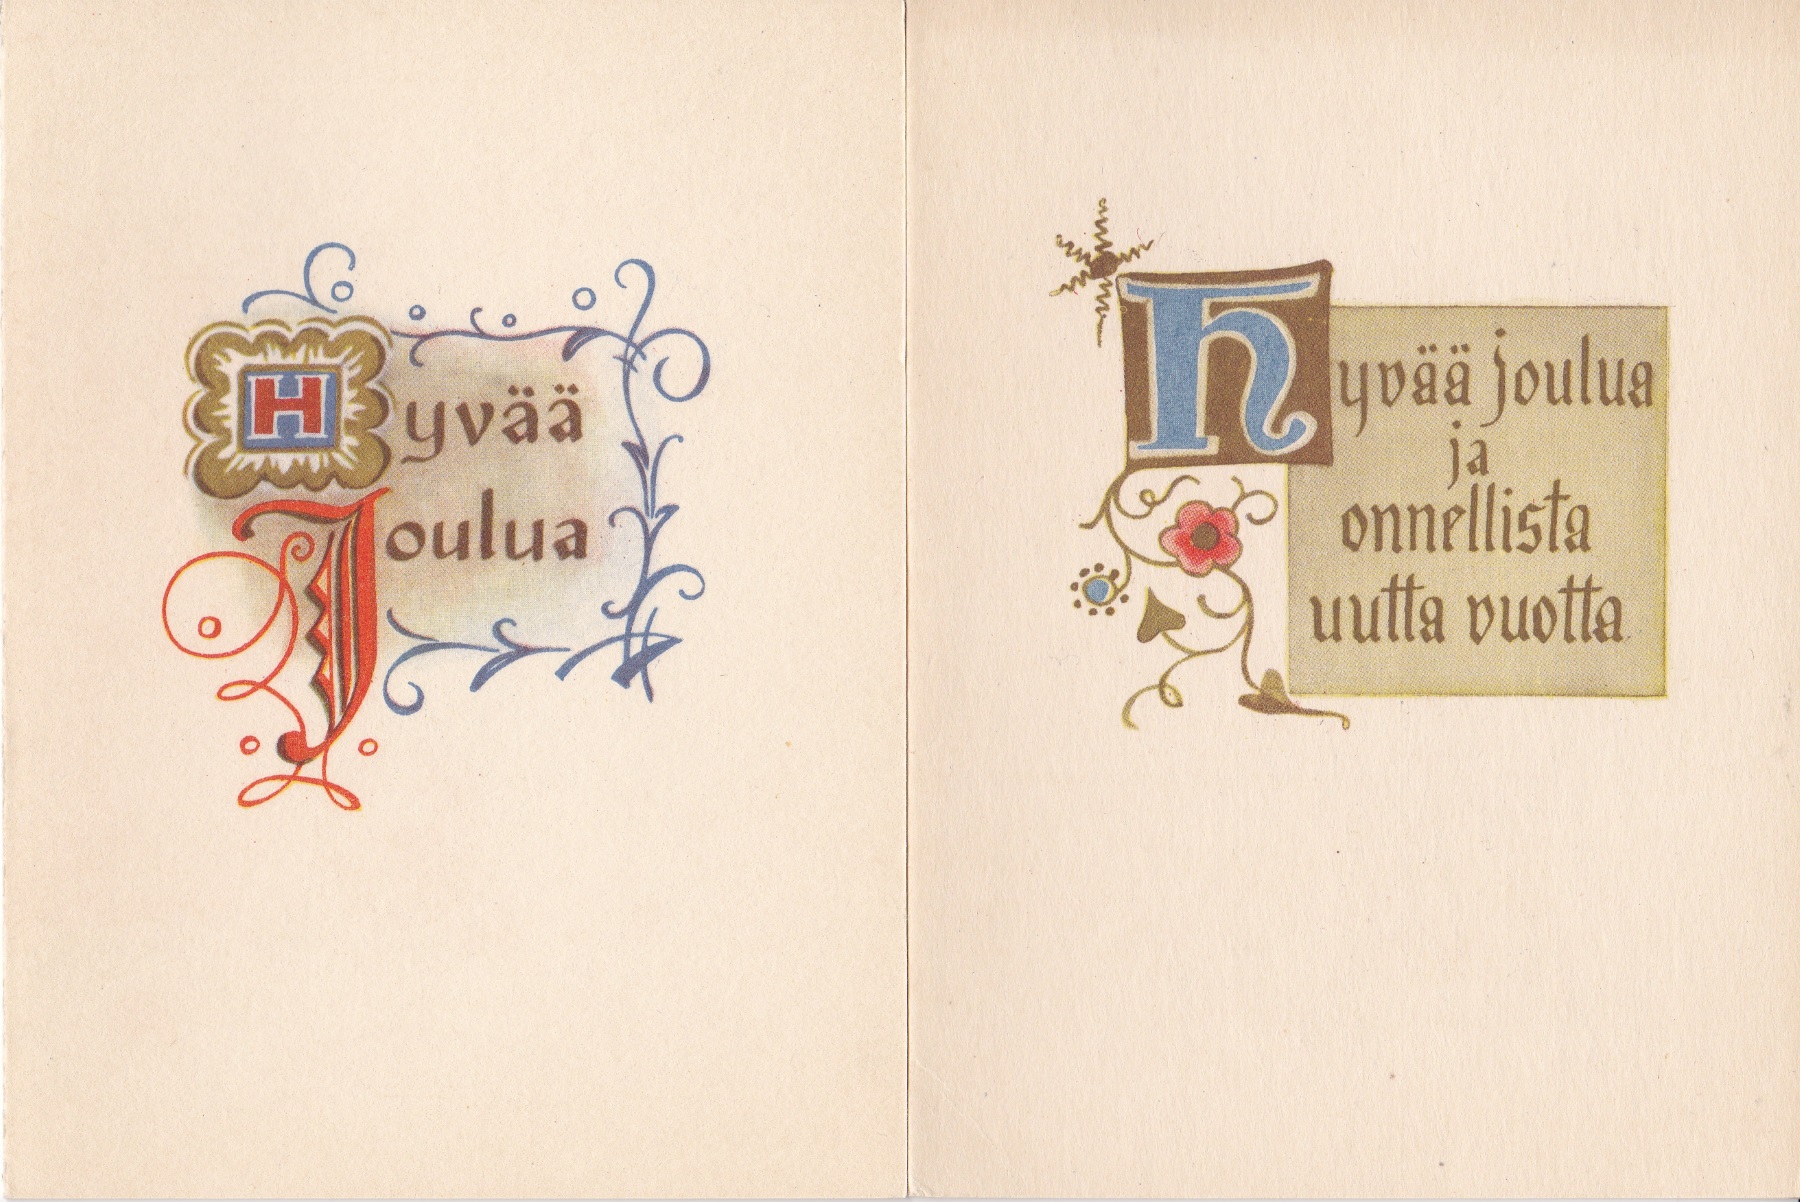 Hyvää
Joulua
hyvää joulua
ja
onnellista
uutta vuotta